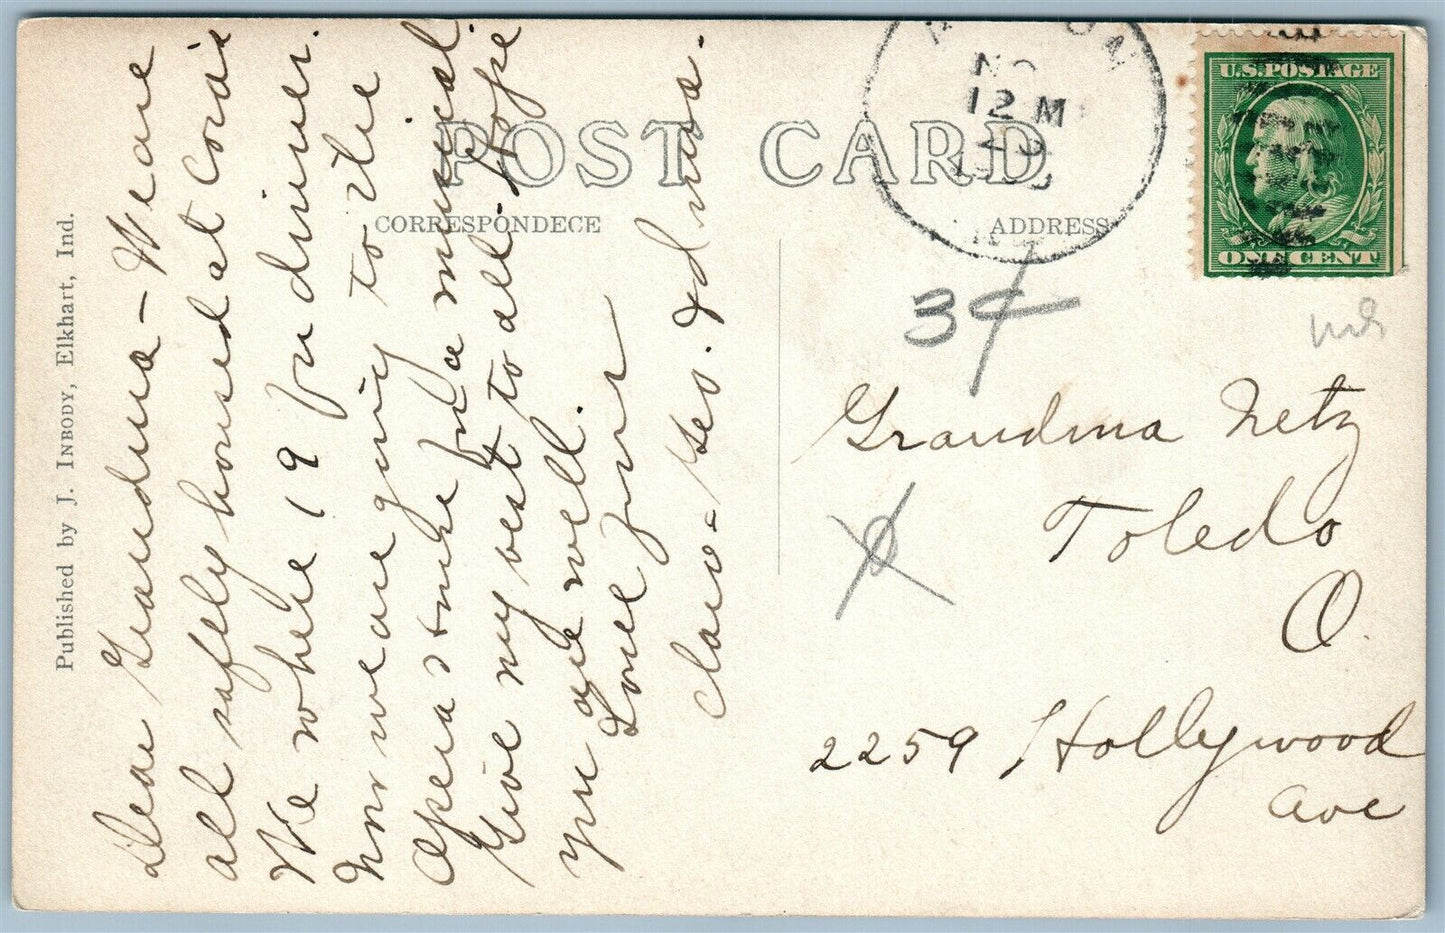 POST CARD
CORRESPONDECE
ADDRESS
Published by J. INBODY, Elkhart, Ind.
NO
12 M
U.S. POSTAGE
ONE CENT
3¢
Dear Grandma - We are
all safely housed at Cora's
We where 19 for dinner.
Now we are going to the
Opera & here for a musical.
Give my best to all. Hope
you are well.
Love from
Clara - Geo. & Edna.
Grandma Netz
Toledo
O.
2259 Hollywood
Ave